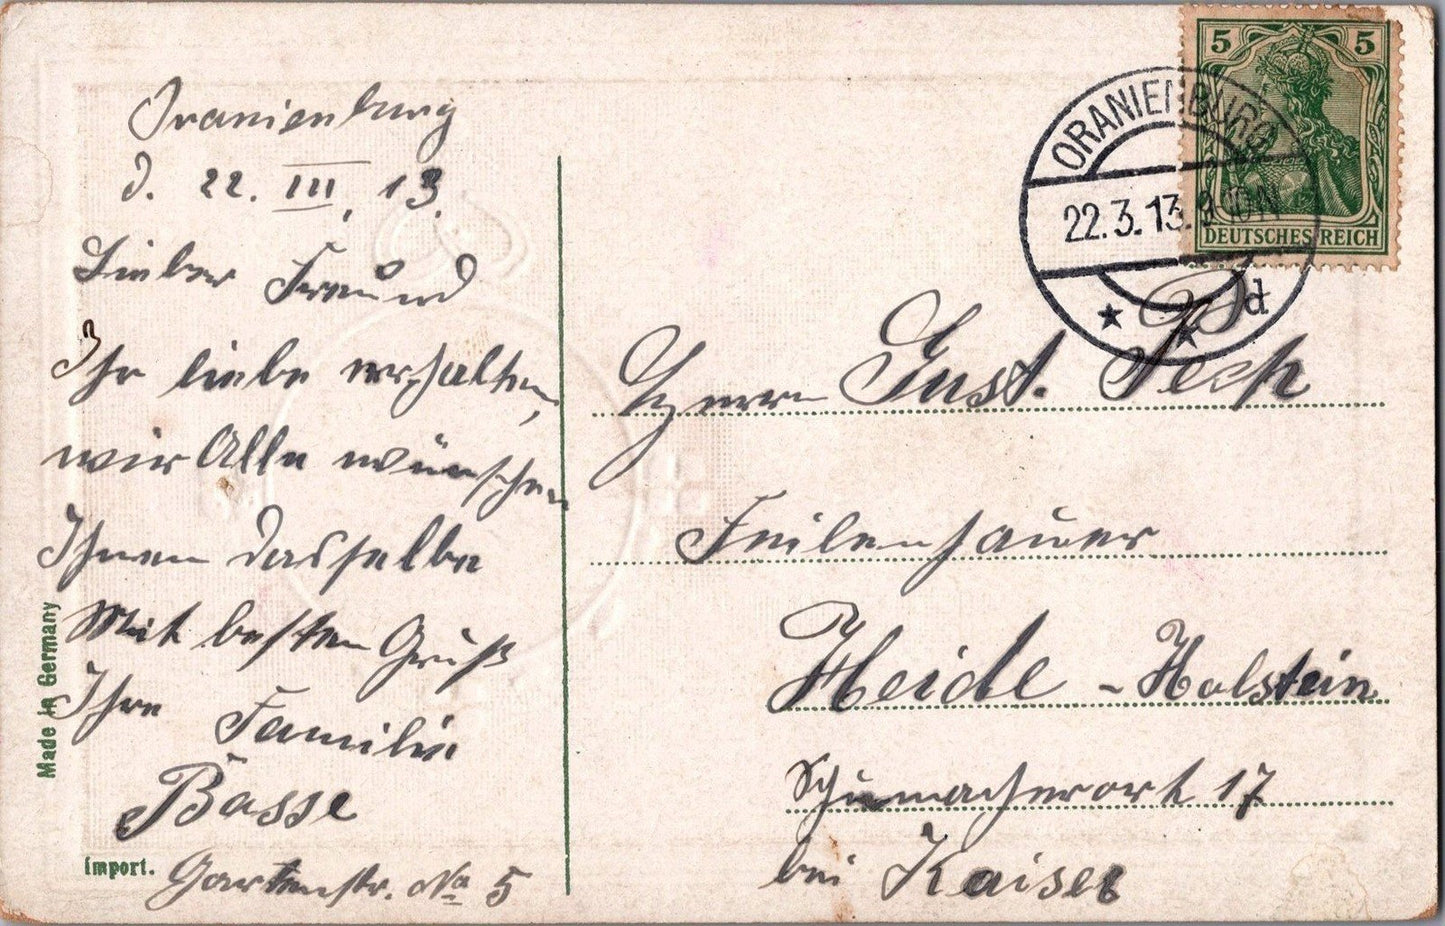 Oranienburg
d. 22. III, 13.
Lieber Freund
Ihr liebe erhalten,
wir Alle wünschen
Ihnen dasselbe
Mit besten Gruß
Ihre Familie
Basse
Gartenstr. No 5
Made in Germany
Import.
5 5
DEUTSCHES REICH
ORANIENBURG
22.3.13.
d
Herrn Gust. Peck
Feilenhauer
Heide - Holstein
Schumacherort 17
bei Kaiser